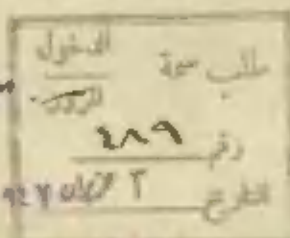 طلب سمة الدخول
المرور
رقم ٤٨٩
التاريخ ٢ حزيران ٩٤٧